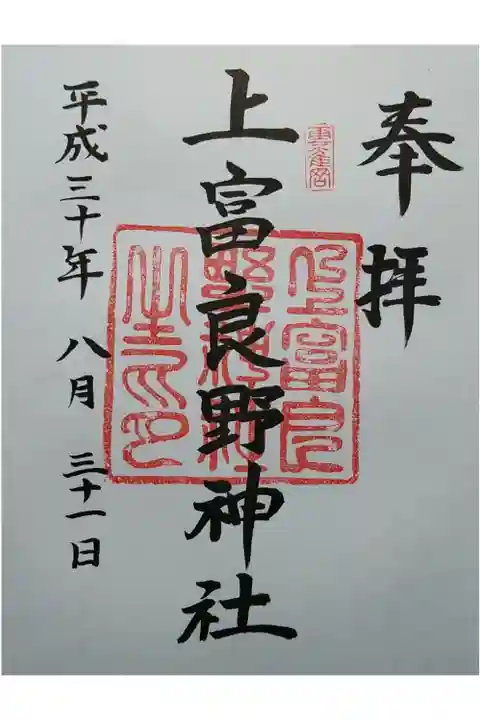 奉拝
上富良野神社
平成三十年 八月 三十一日